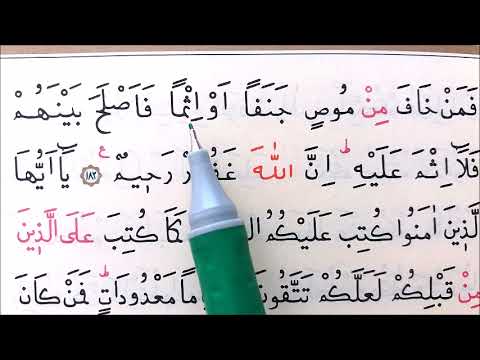 فَمَنْ خَافَ مِنْ مُوصٍ جَنَفًا اَوْ اِثْمًا فَاَصْلَحَ بَيْنَهُمْ
فَلَٓا اِثْمَ عَلَيْهِۜ اِنَّ اللّٰهَ غَفُورٌ رَحٖيمٌ ع ﴿١٨٢﴾ يَٓا اَيُّهَا
الَّذٖينَ اٰمَنُوا كُتِبَ عَلَيْكُمُ كَمَا كُتِبَ عَلَى الَّذٖينَ
مِنْ قَبْلِكُمْ لَعَلَّكُمْ تَتَّقُونَ مَعْدُودَاتٍۜ فَمَنْ كَانَ